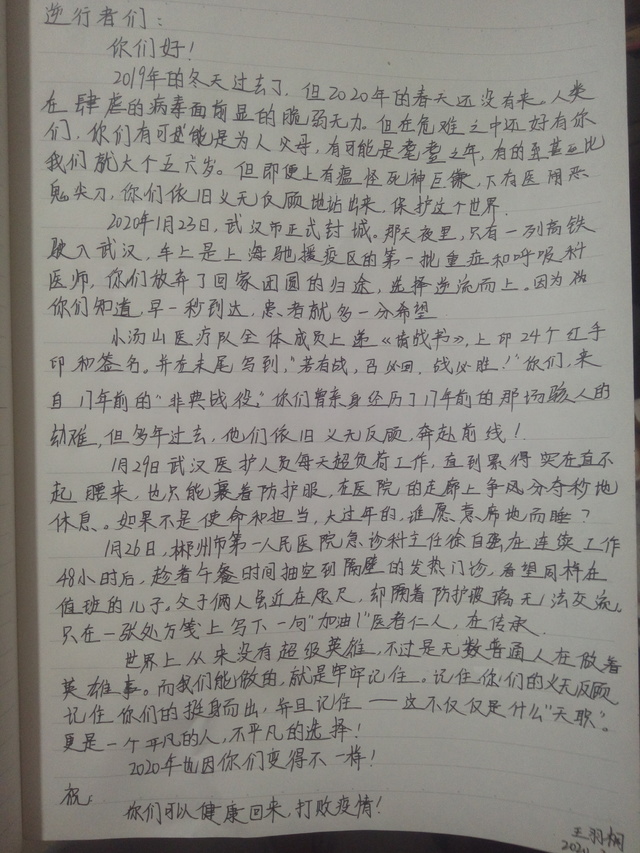 逆行者们：
你们好！
2019年的冬天过去了，但2020年的春天还没有来。人类
在肆虐的病毒面前显的脆弱无力。但在危难之中还好有你
们，你们有可能是为人父母，有可能是耄耋之年，有的甚至比
我们就大个五六岁。但即便上有瘟怪死神巨镰，下有医闹恶
鬼尖刀，你们依旧义无反顾地站出来，保护这个世界.
2020年1月23日，武汉市正式封城。那天夜里，只有一列高铁
驶入武汉，车上是上海驰援疫区的第一批重症和呼吸科
医师，你们放弃了回家团圆的归途，选择逆流而上。因为
你们知道，早一秒到达，患者就多一分希望.
小汤山医疗队全体成员上递《请战书》，上印24个红手
印和签名。并在末尾写到，"若有战，召必回，战必胜！"你们，来
自17年前的"非典战役。"你们曾亲身经历了17年前的那场骇人的
劫难，但多年过去，他们依旧义无反顾，奔赴前线！
1月29日武汉医护人员每天超负荷工作，直到累得实在直不
起腰来，也只能裹着防护服，在医院的走廊上争风分夺秒地
休息。如果不是使命和担当，大过年的，谁愿意席地而睡？
1月26日，郴州市第一人民医院急诊科主任徐自强在连续工作
48小时后，趁着午餐时间抽空到隔壁的发热门诊，看望同样在
值班的儿子。父子俩人虽近在咫尺，却隔着防护玻璃无法交流，
只在一张处方笺上写下一句"加油！"医者仁人，在传承.
世界上从来没有超级英雄，不过是无数普通人在做着
英雄事。而我们能做的，就是牢牢记住。记住你们的义无反顾
记住你们的挺身而出，并且记住——这不仅仅是什么"天职"。
更是一个平凡的人，不平凡的选择！
2020年也因你们变得不一样！
祝：
你们可以健康回来，打败疫情！
王羽桐